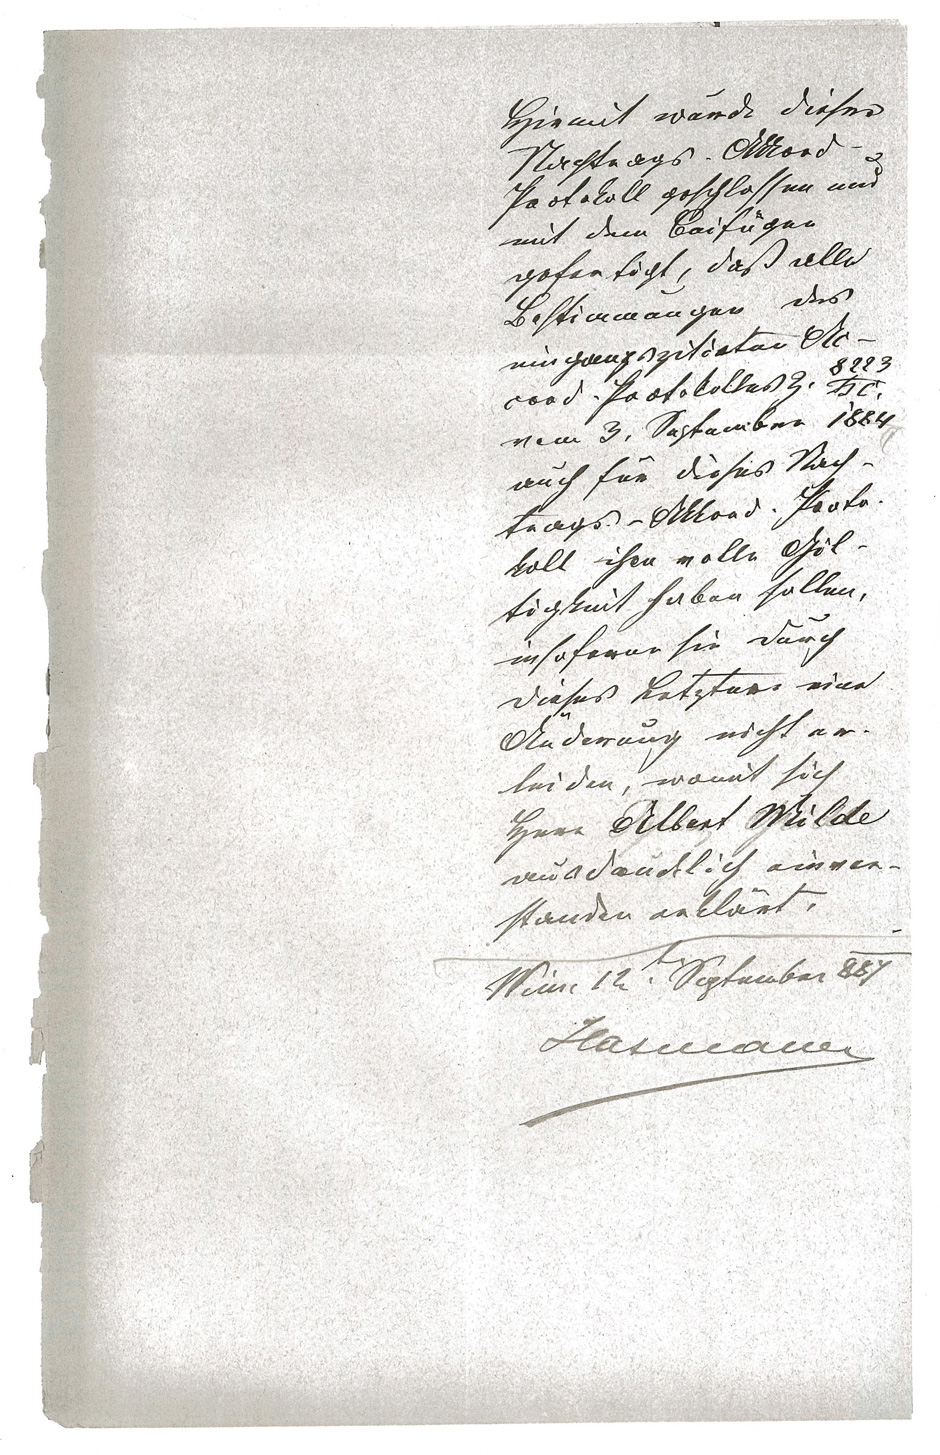 Hiemit wurde dieses
Nachtrags-Akkord-
Protokoll geschlossen und
mit dem Beifügen
gefertigt, daß alle
Bestimmungen des
eingangszitirten Ac-
cord-Protokolles Z. 8223
vom 3. September 1884
auch für dieses Nach-
trags-Akkord-Proto-
koll ihre volle Gül-
tigkeit haben sollen,
insoferne sie durch
dieses Letztere eine
Änderung nicht er-
leiden, womit sich
Herr Albert Milde
ausdrücklich einver-
standen erklärt.
Wien 12. September 887